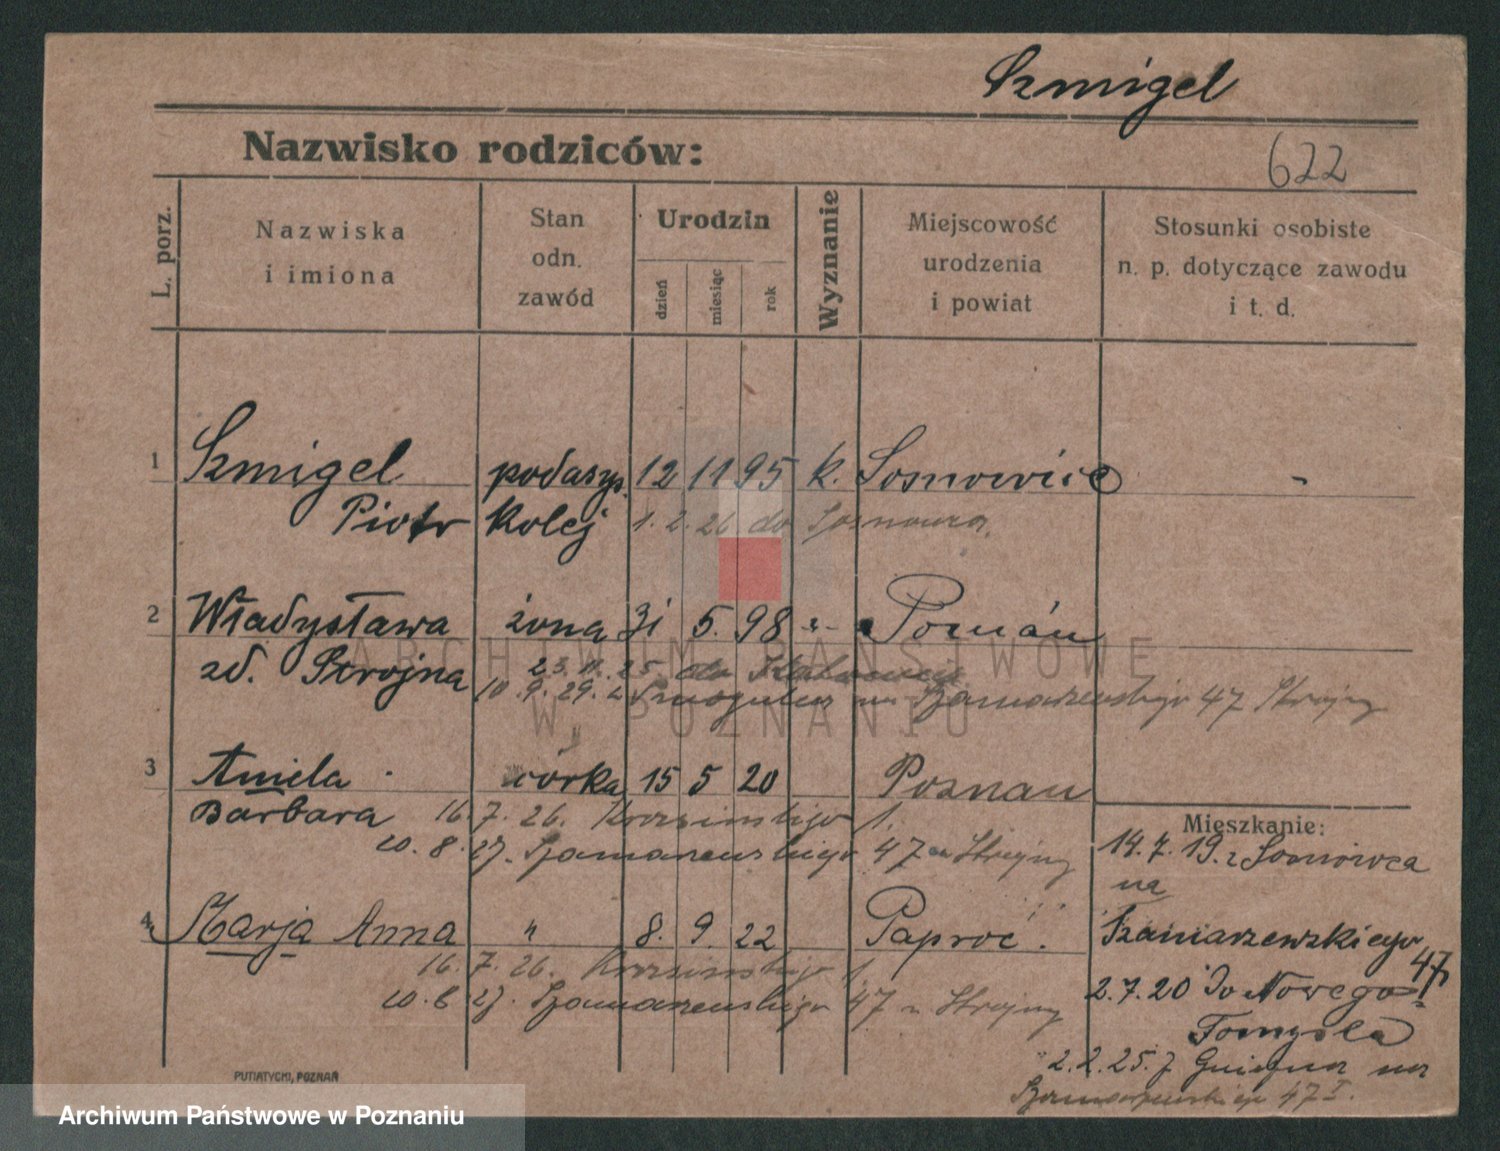 Szmigel
Nazwisko rodziców:
622
L. porz.
Nazwiska
i imiona
Stan
odn.
zawód
Urodzin
dzień
miesiąc
rok
Wyznanie
Miejscowość
urodzenia
i powiat
Stosunki osobiste
n. p. dotyczące zawodu
i t. d.
1 Szmigel podasys. 12 11 95 k. Sosnowice -
Piotr kolej 1. 2. 26 do Sosnowca.
2 Władysława żona 31 5. 98 -"- Poznań
zd. Strojna 23. 11. 25 do
10. 9. 29. z na Szamarzewskiego 47 Strojny
3 Aniela córka 15 5 20 Poznań
Barbara 16. 7. 26. 1.
20. 8. 27. Szamarzewskiego 47 u Strojny
4 Marja Anna " 8. 9. 22 Paproć.
16. 7. 26. 1
20. 8 27. Szamarzewskiego 47 u Strojny
Mieszkanie:
14. 7. 19. z Sosnowca
na
Szamarzewskiego
47
2. 7. 20 do Nowego
Tomyśla
2. 2. 25. z Gniezna na
Szamarzewskiego 47 I.
PUTIATYCKI, POZNAŃ
ARCHIWUM PAŃSTWOWE
W POZNANIU
Archiwum Państwowe w Poznaniu